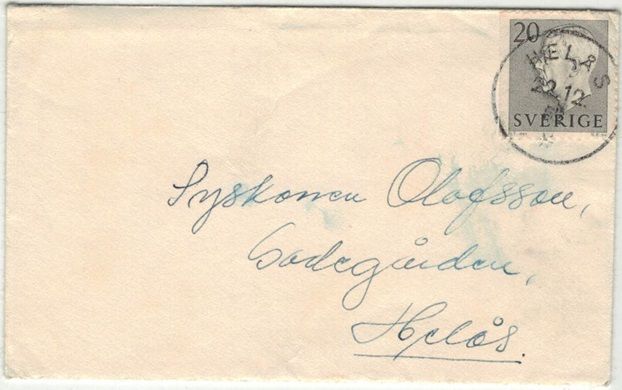 20
HELÅS
22.12.
SVERIGE
Syskonen Olofsson,
Godegården,
Helås.